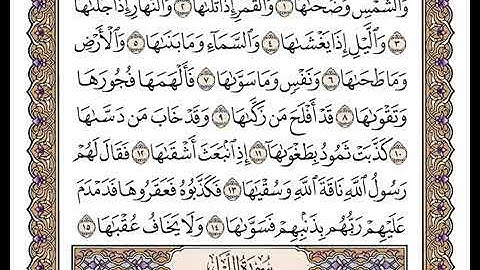 وَالشَّمْسِ وَضُحَىٰهَا ۝١ وَالْقَمَرِ إِذَا تَلَىٰهَا ۝٢ وَالنَّهَارِ إِذَا جَلَّىٰهَا
۝٣ وَالَّيْلِ إِذَا يَغْشَىٰهَا ۝٤ وَالسَّمَآءِ وَمَا بَنَىٰهَا ۝٥ وَالْأَرْضِ
وَمَا طَحَىٰهَا ۝٦ وَنَفْسٍ وَمَا سَوَّىٰهَا ۝٧ فَأَلْهَمَهَا فُجُورَهَا
وَتَقْوَىٰهَا ۝٨ قَدْ أَفْلَحَ مَن زَكَّىٰهَا ۝٩ وَقَدْ خَابَ مَن دَسَّىٰهَا
۝١٠ كَذَّبَتْ ثَمُودُ بِطَغْوَىٰهَا ۝١١ إِذِ انۢبَعَثَ أَشْقَىٰهَا ۝١٢ فَقَالَ لَهُمْ
رَسُولُ اللَّهِ نَاقَةَ اللَّهِ وَسُقْيَىٰهَا ۝١٣ فَكَذَّبُوهُ فَعَقَرُوهَا فَدَمْدَمَ
عَلَيْهِمْ رَبُّهُم بِذَنۢبِهِمْ فَسَوَّىٰهَا ۝١٤ وَلَا يَخَافُ عُقْبَىٰهَا ۝١٥
سُورَةُ اللَّيْل